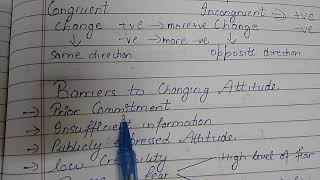 Congruent Incongruent → +ve
Change +ve → more +ve Change → -ve
↓ -ve → more -ve ↓
Same direction opposite direction
Barriers to Changing Attitude.
→ Prior Commitment
→ Insufficient information
→ Publicly expressed Attitude.
→ Low Credibility High level of fear
fear